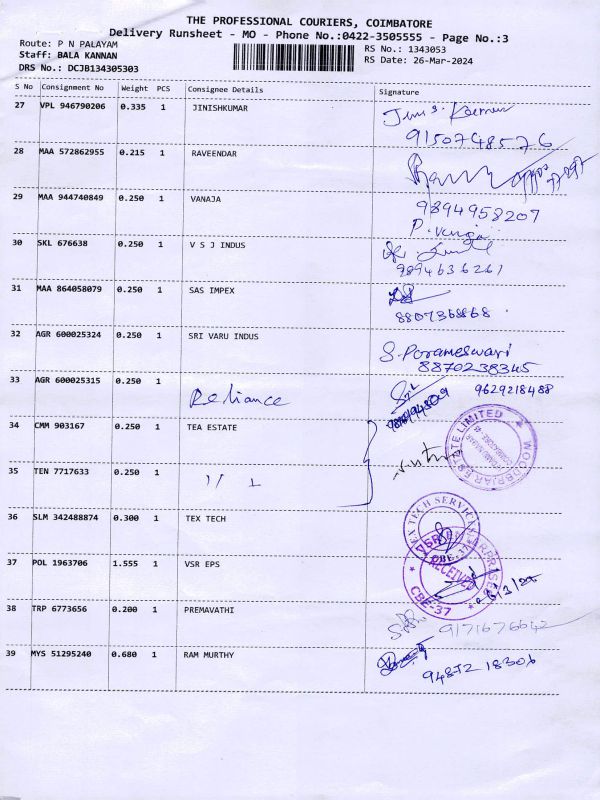 THE PROFESSIONAL COURIERS, COIMBATORE
Delivery Runsheet - MO - Phone No.:0422-3505555 - Page No.:3
Route: P N PALAYAM
Staff: BALA KANNAN
DRS No.: DCJB134305303
RS No.: 1343053
RS Date: 26-Mar-2024
S No Consignment No Weight PCS Consignee Details Signature
27 VPL 946790206 0.335 1 JINISHKUMAR
9150748576
28 MAA 572862955 0.215 1 RAVEENDAR
29 MAA 944740849 0.250 1 VANAJA 9894958207
30 SKL 676638 0.250 1 V S J INDUS
9894636261
31 MAA 864058079 0.250 1 SAS IMPEX
8807368868
32 AGR 600025324 0.250 1 SRI VARU INDUS S. Porameswari
8870238345
33 AGR 600025315 0.250 1 Reliance 9629218488
34 CMM 903167 0.250 1 TEA ESTATE
35 TEN 7717633 0.250 1
36 SLM 342488874 0.300 1 TEX TECH
37 POL 1963706 1.555 1 VSR EPS
RECEIVED
CBE-37
38 TRP 6773656 0.200 1 PREMAVATHI
9171676642
39 MYS 51295240 0.680 1 RAM MURTHY
94872 18306